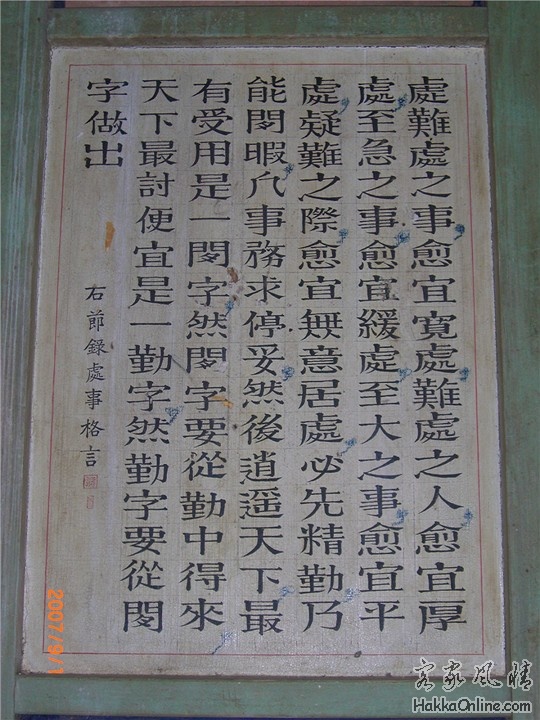 處難處之事愈宜寬處難處之人愈宜厚
處至急之事愈宜緩處至大之事愈宜平
處疑難之際愈宜無意居處必先精勤乃
能閒暇凢事務求停妥然後逍遥天下最
有受用是一閒字然閒字要從勤中得來
天下最討便宜是一勤字然勤字要從閒
字做出
右節錄處事格言
2007/9/1
客家風情
HakkaOnline.com